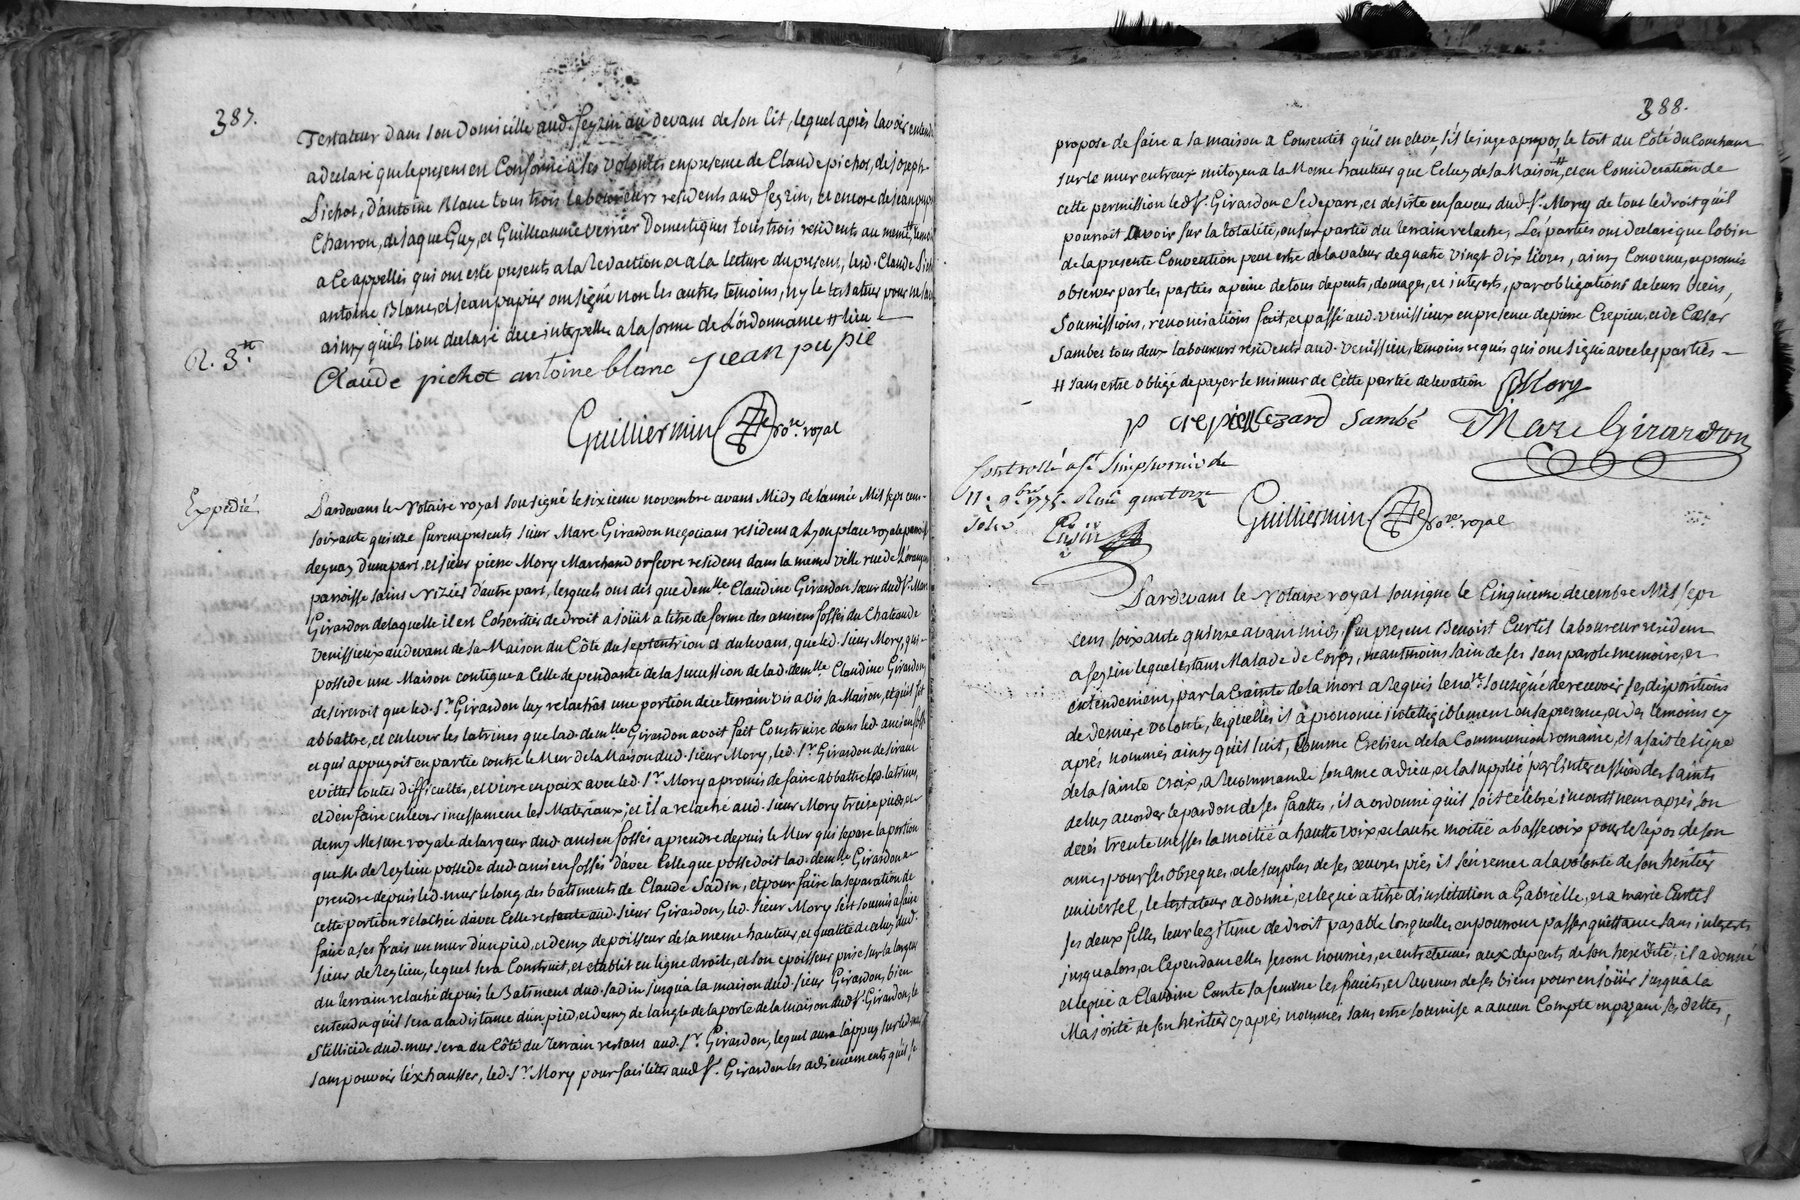 387.
Testateur dans son Domicille aud. feyzin au devant de son lit, lequel après l'avoir entendu
a declaré que le present est Conforme a ses volontés en presence de Claude pichot, de joseph
Pichot, d'antoine Blanc tous trois laboureurs residents aud feyzin, et encore de jean pupié
Charron, de jaque Guy, et Guilleaume verrier Domestiques tous trois residents au meme
a ce appellés qui ont esté presents a la Redaction et a la lecture du present, lesd. Claude Pichot
antoine Blanc, et jean papier ont signé non les autres temoins, ny le testateur pour ne savoir
ainsy qu'ils l'ont declaré de ce interpellé a la forme de L'ordonnance # lieu
R. 3tt.
Claude pichot antoine blanc jean pupié
Guilliermin nore. royal
Expedié
Pardevant le Notaire royal sousigné le sixieme novembre avant Midy de l'année Mil sept cent
soixante quinze furent presents sieur Marc Girardon negociant resident a Lyon place royale paroisse
deynay d'une part, et sieur pierre Mory Marchand orfevre resident dans la meme ville rue de L'orangerie
parroisse saint Nizier d'autre part, lesquels ont dit que demlle Claudine Girardon sœur dud Sr. Marc
Girardon de laquelle il est Coheritier de droit a jouit a titre de ferme des anciens fossés du Chateau de
Venissieux au devant de sa Maison du Côté du septentrion et du levant, que led. sieur Mory, qui
possede une Maison contigue a Celle dependante de la succession de lad. demlle Claudine Girardon,
desireroit que led. Sr. Girardon luy relachât une portion de ce terrain vis a vis sa Maison, et qu'il fit
abbattre, et enlever les latrines que lad. demlle Girardon avoit fait Construire dans led. ancien fossé
et qui appuyoit en partie contre le Mur de la Maison dud. sieur Mory, led. Sr. Girardon desirant
evitter toutes difficultés, et vivre en paix avec led. Sr. Mory a promis de faire abbattre led. latrines,
et d'en faire enlever incessament les Materiaux; et il a relaché aud. sieur Mory treize pieds, et
demy Mesure royale de largeur dud. ancien fossés a prendre depuis le Mur qui separe la portion
que Mr de Reylieu possede dud. ancien fossés d'avec Celle que possedoit lad. demlle Girardon a
prendre depuis led. mur le long des batiments de Claude Sadin, et pour faire la separation de
cette portion relachée d'avec Celle restante aud. sieur Girardon, led. sieur Mory s'est soumis a faire
faire a ses frais un mur d'un pied, et demy de poisseur de la meme hauteur, et qualité de celuy dud.
sieur de Reylieu, lequel sera Construit, et etablit en ligne droite, et son epoisseur prise sur la largeur
du terrain relaché depuis le Batiment dud. Sadin jusqua la maison dud. sieur Girardon, bien
entendu qu'il sera a la distance d'un pied, et demy de l'angle de la porte de la maison dud. Sr. Girardon, le
stillicide dud. mur sera du Côté du Terrain restant aud. Sr. Girardon, lequel aura l'appuy sur led. mur
sans pouvoir l'exhausser, led. Sr Mory pour faciliter aud Sr. Girardon les adjencements qu'il se
388.
propose de faire a sa maison a Consenti qu'il en eleve, s'il le juge apropos, le toit du Côté du Couchant
sur le mur entreux mitoyen a la Meme hauteur que Celuy de sa Maison #, et en Consideration de
cette permission led Sr. Girardon se depart, et desiste en faveur dud Sr. Mory de tout le droit qu'il
pourroit avoir sur la totalité, ou sur partie du terrain relaché, Les parties ont declaré que l'objet
de la presente Convention peut estre de la valeur de quatre vingt dix livres, ainsy Convenu, et promis
observer par les parties a peine de tous depents, domages, et interests, par obligations de leurs biens,
Soumissions, renonciations fait, et passé aud. venissieux en presence de pierre Crepieu, et de Cæsar
Sambet tous deux laboureurs residents aud. venissieux temoins requis qui ont signé avec les parties
# sans estre obligé de payer le mimur de Cette partie d'elevation PMory
p crepieu Cezard Sambé Marc Girardon
Controllé a St Simphorien de
11e 9bre 1775. Reçu quatorze
sols
Guilliermin nore. royal
Pardevant le Notaire royal sousigné le Cinquieme decembre Mil sept
cent soixante quinze avant midy fut present Benoist Curtil laboureur resident
a feyzin lequel estant Malade de Corps, neantmoins sain de ses sens parole memoire, et
entendement, par la Crainte de la mort a Requis le nore. sousigné de recevoir ses dispositions
de derniere volonté, lesquelles il a prononcé intelligiblement en sa presence, et des temoins cy
après nommés ainsy qu'il suit, Comme Cretien de la Communion romaine, il a fait le signe
de la sainte Croix, a Recommandé son ame a dieu, et la supplié par l'intercession des saints
de luy accorder le pardon de ses fauttes, il a ordonné qu'il soit celebré incontinent après son
decés trente messes la moitié a hautte voix, et l'autre moitié a basse voix pour le repos de son
ame, pour ses obseques, et le surplus de ses œuvres pies il s'en remet a la volonté de son heritier
universel, le testateur a donné, et legué a titre d'institution a Gabrielle, et a marie Curtil
ses deux filles leur legitime de droit payable lorsquelles en pourront passer quittance sans interests
jusqu'alors, et Cependant elles seront nourries, et entretenues aux depents de son heredité; il a donné
et legué a Claudine Comte sa femme les fruits, et Revenus de ses biens pour en jouir jusqu'a la
Majorité de son heritier cy après nommé sans estre soumise a aucun Compte en payant ses dettes,